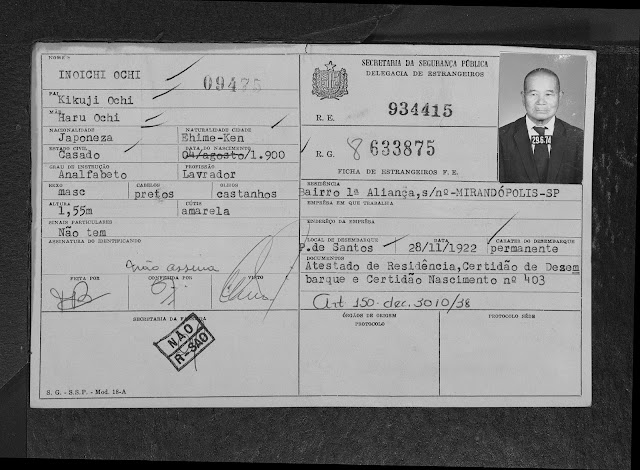 NOME
INOICHI OCHI
09475
PAI
Kikuji Ochi
MÃE
Haru Ochi
NACIONALIDADE NATURALIDADE CIDADE
Japoneza Ehime-Ken
ESTADO CIVIL DATA DO NASCIMENTO
Casado 04/agosto/1.900
GRAU DE INSTRUÇÃO PROFISSÃO
Analfabeto Lavrador
SEXO CABELOS OLHOS
masc pretos castanhos
ALTURA CÚTIS
1,55m amarela
SINAIS PARTICULARES
Não tem
ASSINATURA DO IDENTIFICANDO
não assina
FEITA POR CONFERIDA POR VISTO
SECRETARIA DA FAZENDA
NÃO
R-SÃO
S. G. - S.S.P. - Mod. 18-A
SECRETARIA DA SEGURANÇA PÚBLICA
DELEGACIA DE ESTRANGEIROS
R. E. 934415
R. G. 8 633875
FICHA DE ESTRANGEIROS F. E.
29.6.74
RESIDÊNCIA
Bairro 1ª Aliança,s/nº-MIRANDÓPOLIS-SP
EMPRÊSA EM QUE TRABALHA
ENDERÊÇO DA EMPRÊSA
LOCAL DE DESEMBARQUE DATA CARATER DO DESEMBARQUE
P.de Santos 28/11/1922 permanente
DOCUMENTOS
Atestado de Residência,Certidão de Desem
barque e Certidão Nascimento nº 403
Art 150 dec. 3010/38
ÓRGÃOS DE ORIGEM PROTOCOLO SÉDE
PROTOCOLO